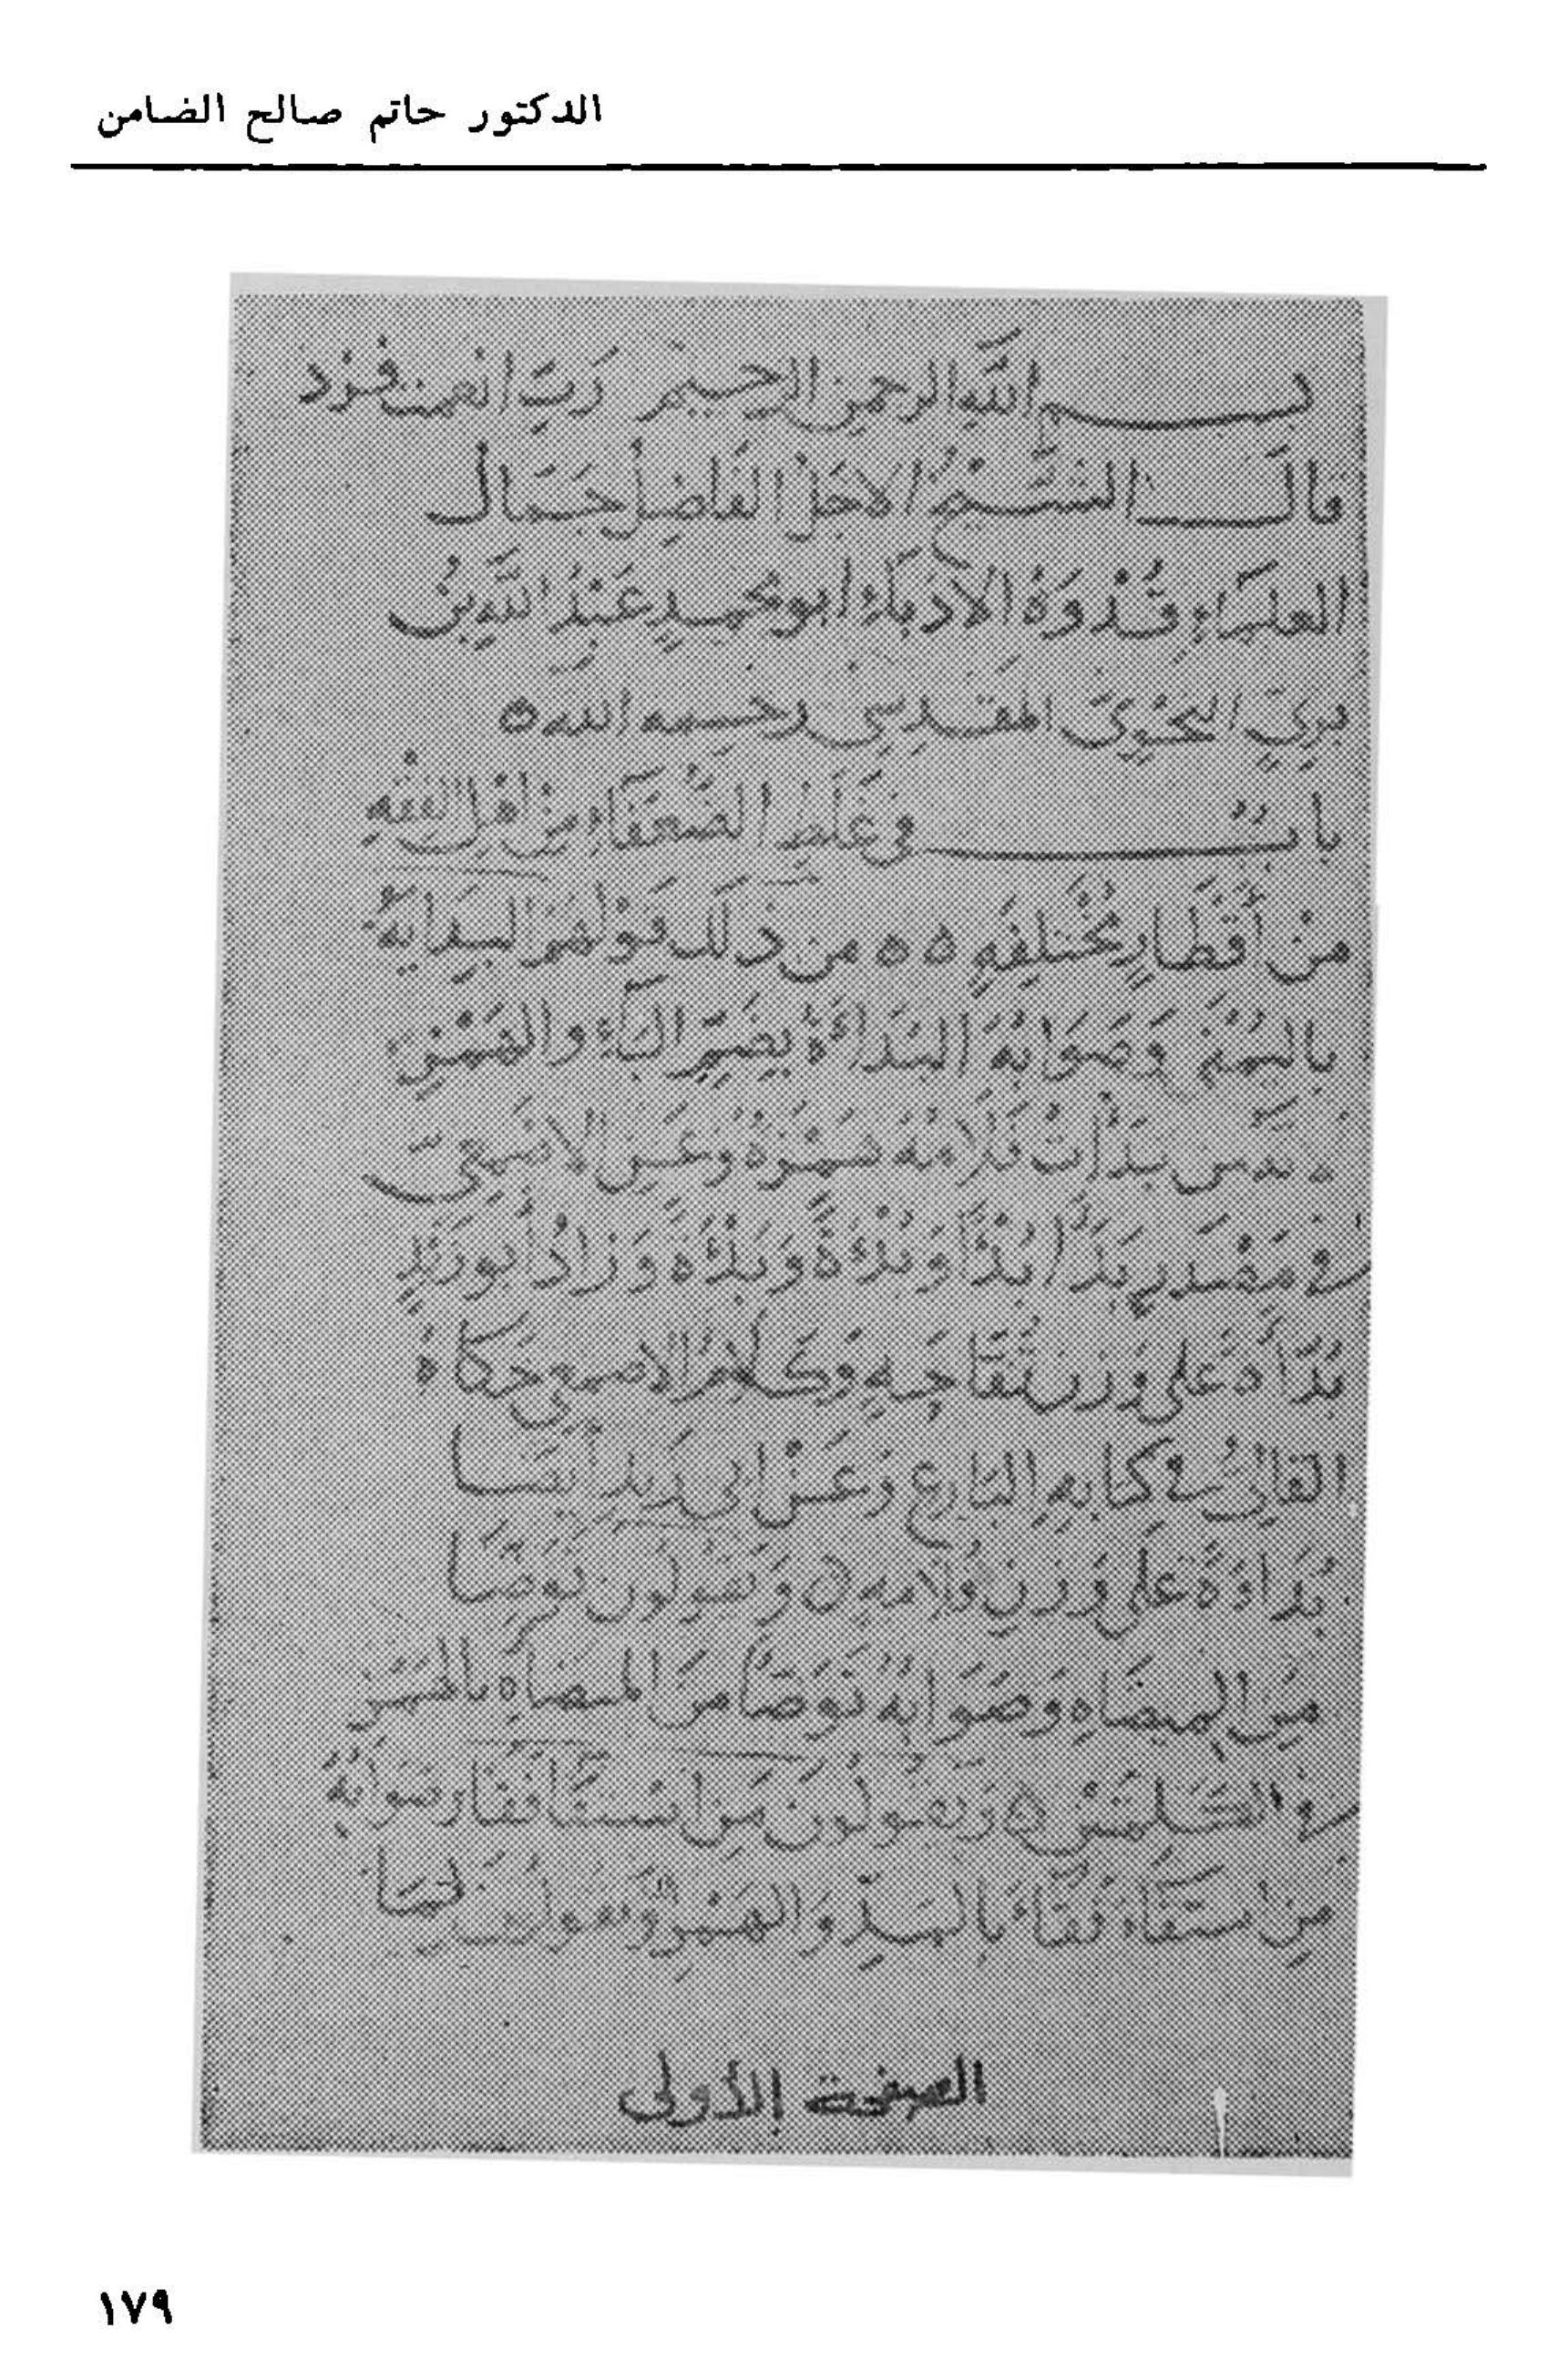 الدكتور حاتم صالح الضامن
بسم الله الرحمن الرحيم رَبِّ انعمت فزد
قالَ الشَّيْخُ الاجَلُّ الفَاضِلُ جَمَال
العلمَاءِ قُدْوَةُ الأدَبَاءِ أبو محمدٍ عَبْدُ اللَّهِ بنُ
بريّ النحْوِيّ المَقدِسِي رحمه الله ه
بابٌ في غَلَطِ الضُّعَفَاءِ مِنْ اهْلِ الفِقْهِ
منْ أقْطَارٍ مُخْتَلِفَهٍ ه ه من ذلك قَوْلهُم البِدَايَهُ
بالياء وَصَوَابُهُ البُدَاءَةُ بِضَمِّ الباءِ والهَمْزِ
بَدَأتُ فَلَامُهُ هَمْزَةٌ وَعَن الاصْمَعِيّ
في مَصْدَرِ بَدَأَ بَدْأً وَبُدْءَةً وَبَدْءَةً وَزَادَ أبو زَيْدٍ
بُدّاءَةً على وَزنِ تُفّاحَهٍ وَكَلَامُ الاصمعي حَكاهُ
القالِيُّ في كتابِهِ البَارِعِ وَعَنْ ابي زيدٍ أيضا
بُدَاءَةً عَلى وَزنِ فُلامه ه وَيقولون تَوَضّا
مِنَ المِيضَاهِ وَصَوَابُهُ تَوَضّأ منَ المِيضَأهِ بالهَمْز
في الكَلِمتَيْن ه وَيقولونَ مِن اسْتَقَا فَقَا وصَوَابُهُ
مِن اسْتَقَاءَ فَقَاءَ بالمَدِّ وَالهَمْزِ وَيقولون
الصفحة الأولى
١٧٩